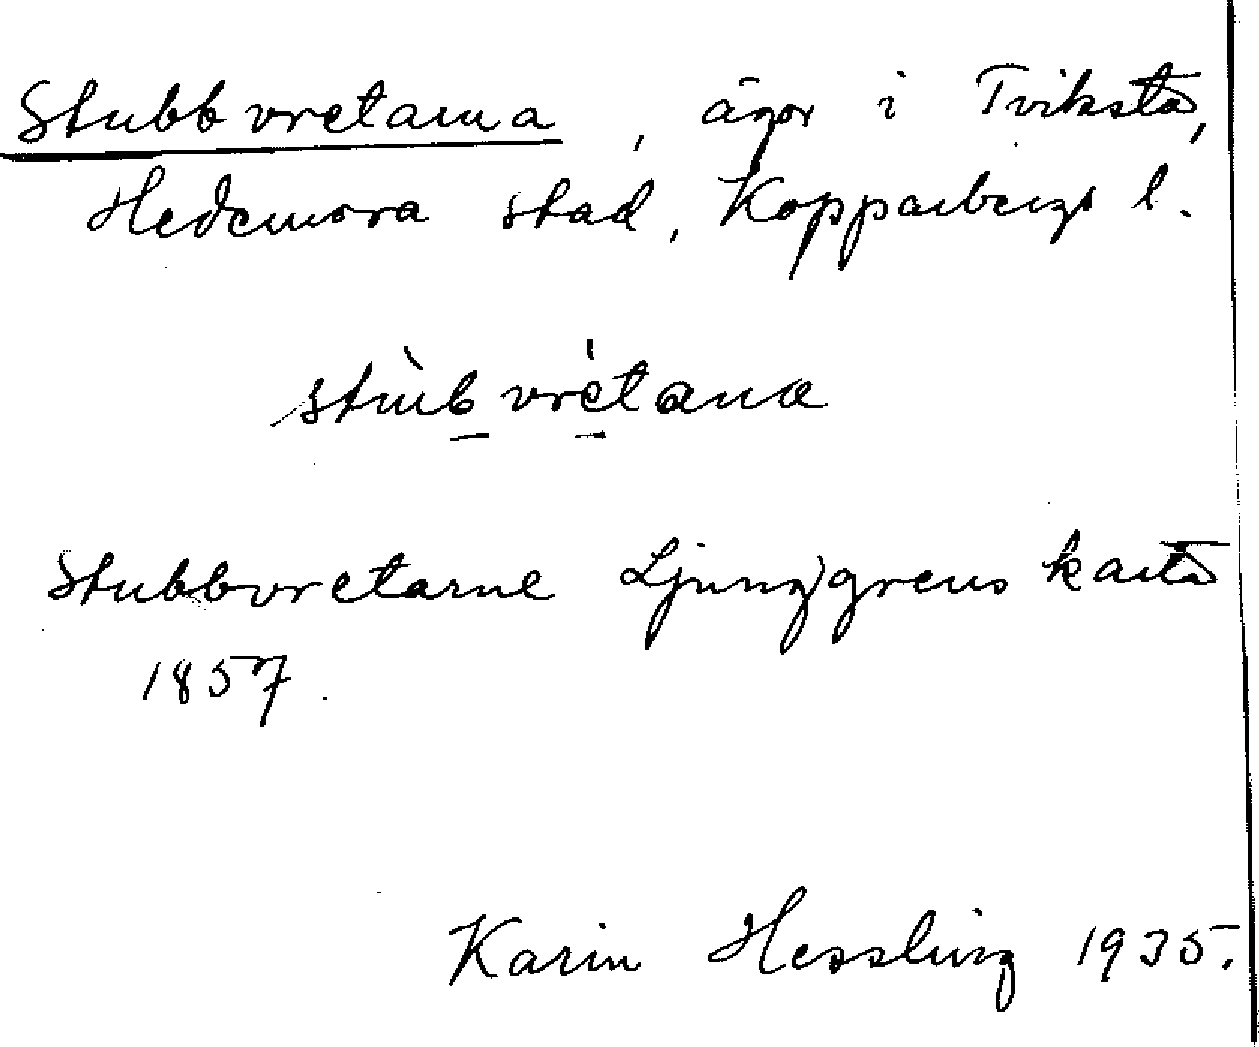 Stubbvretarna, ägor i Tviksta,
Hedemora stad, Kopparbergs l.
stùb vrétana
Stubbvretarne Ljunggrens karta
1857.
Karin Hessling 1935.